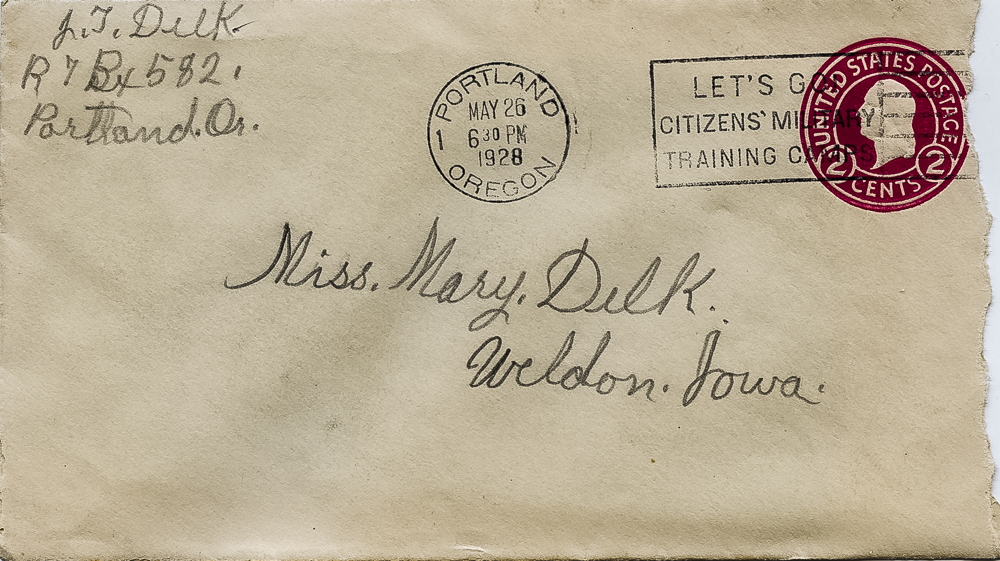 J.T. Delk
R 7 Bx 582.
Portland. Or.
PORTLAND
MAY 26
6 30 PM
1928
1
OREGON
LET'S GO!
CITIZENS' MILITARY
TRAINING CAMPS
UNITED STATES POSTAGE
2 CENTS 2
Miss. Mary. Delk.
Weldon. Iowa.